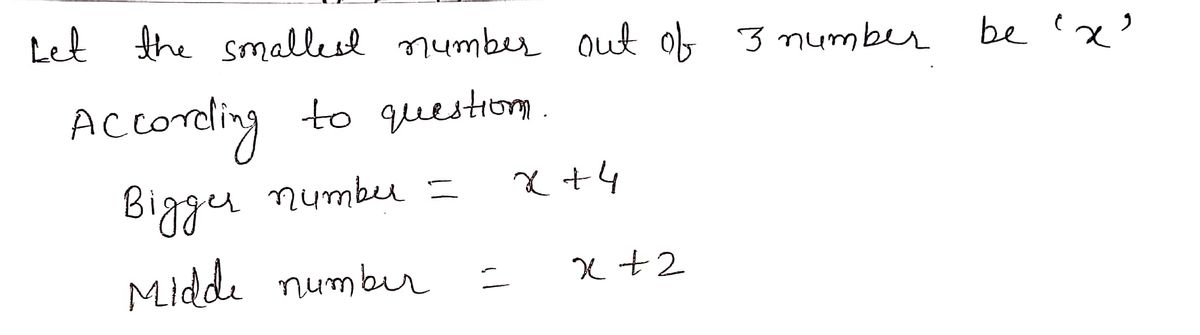 Let the smallest number out of 3 number be 'x'
According to question.
Bigger number = x + 4
Midde number = x + 2